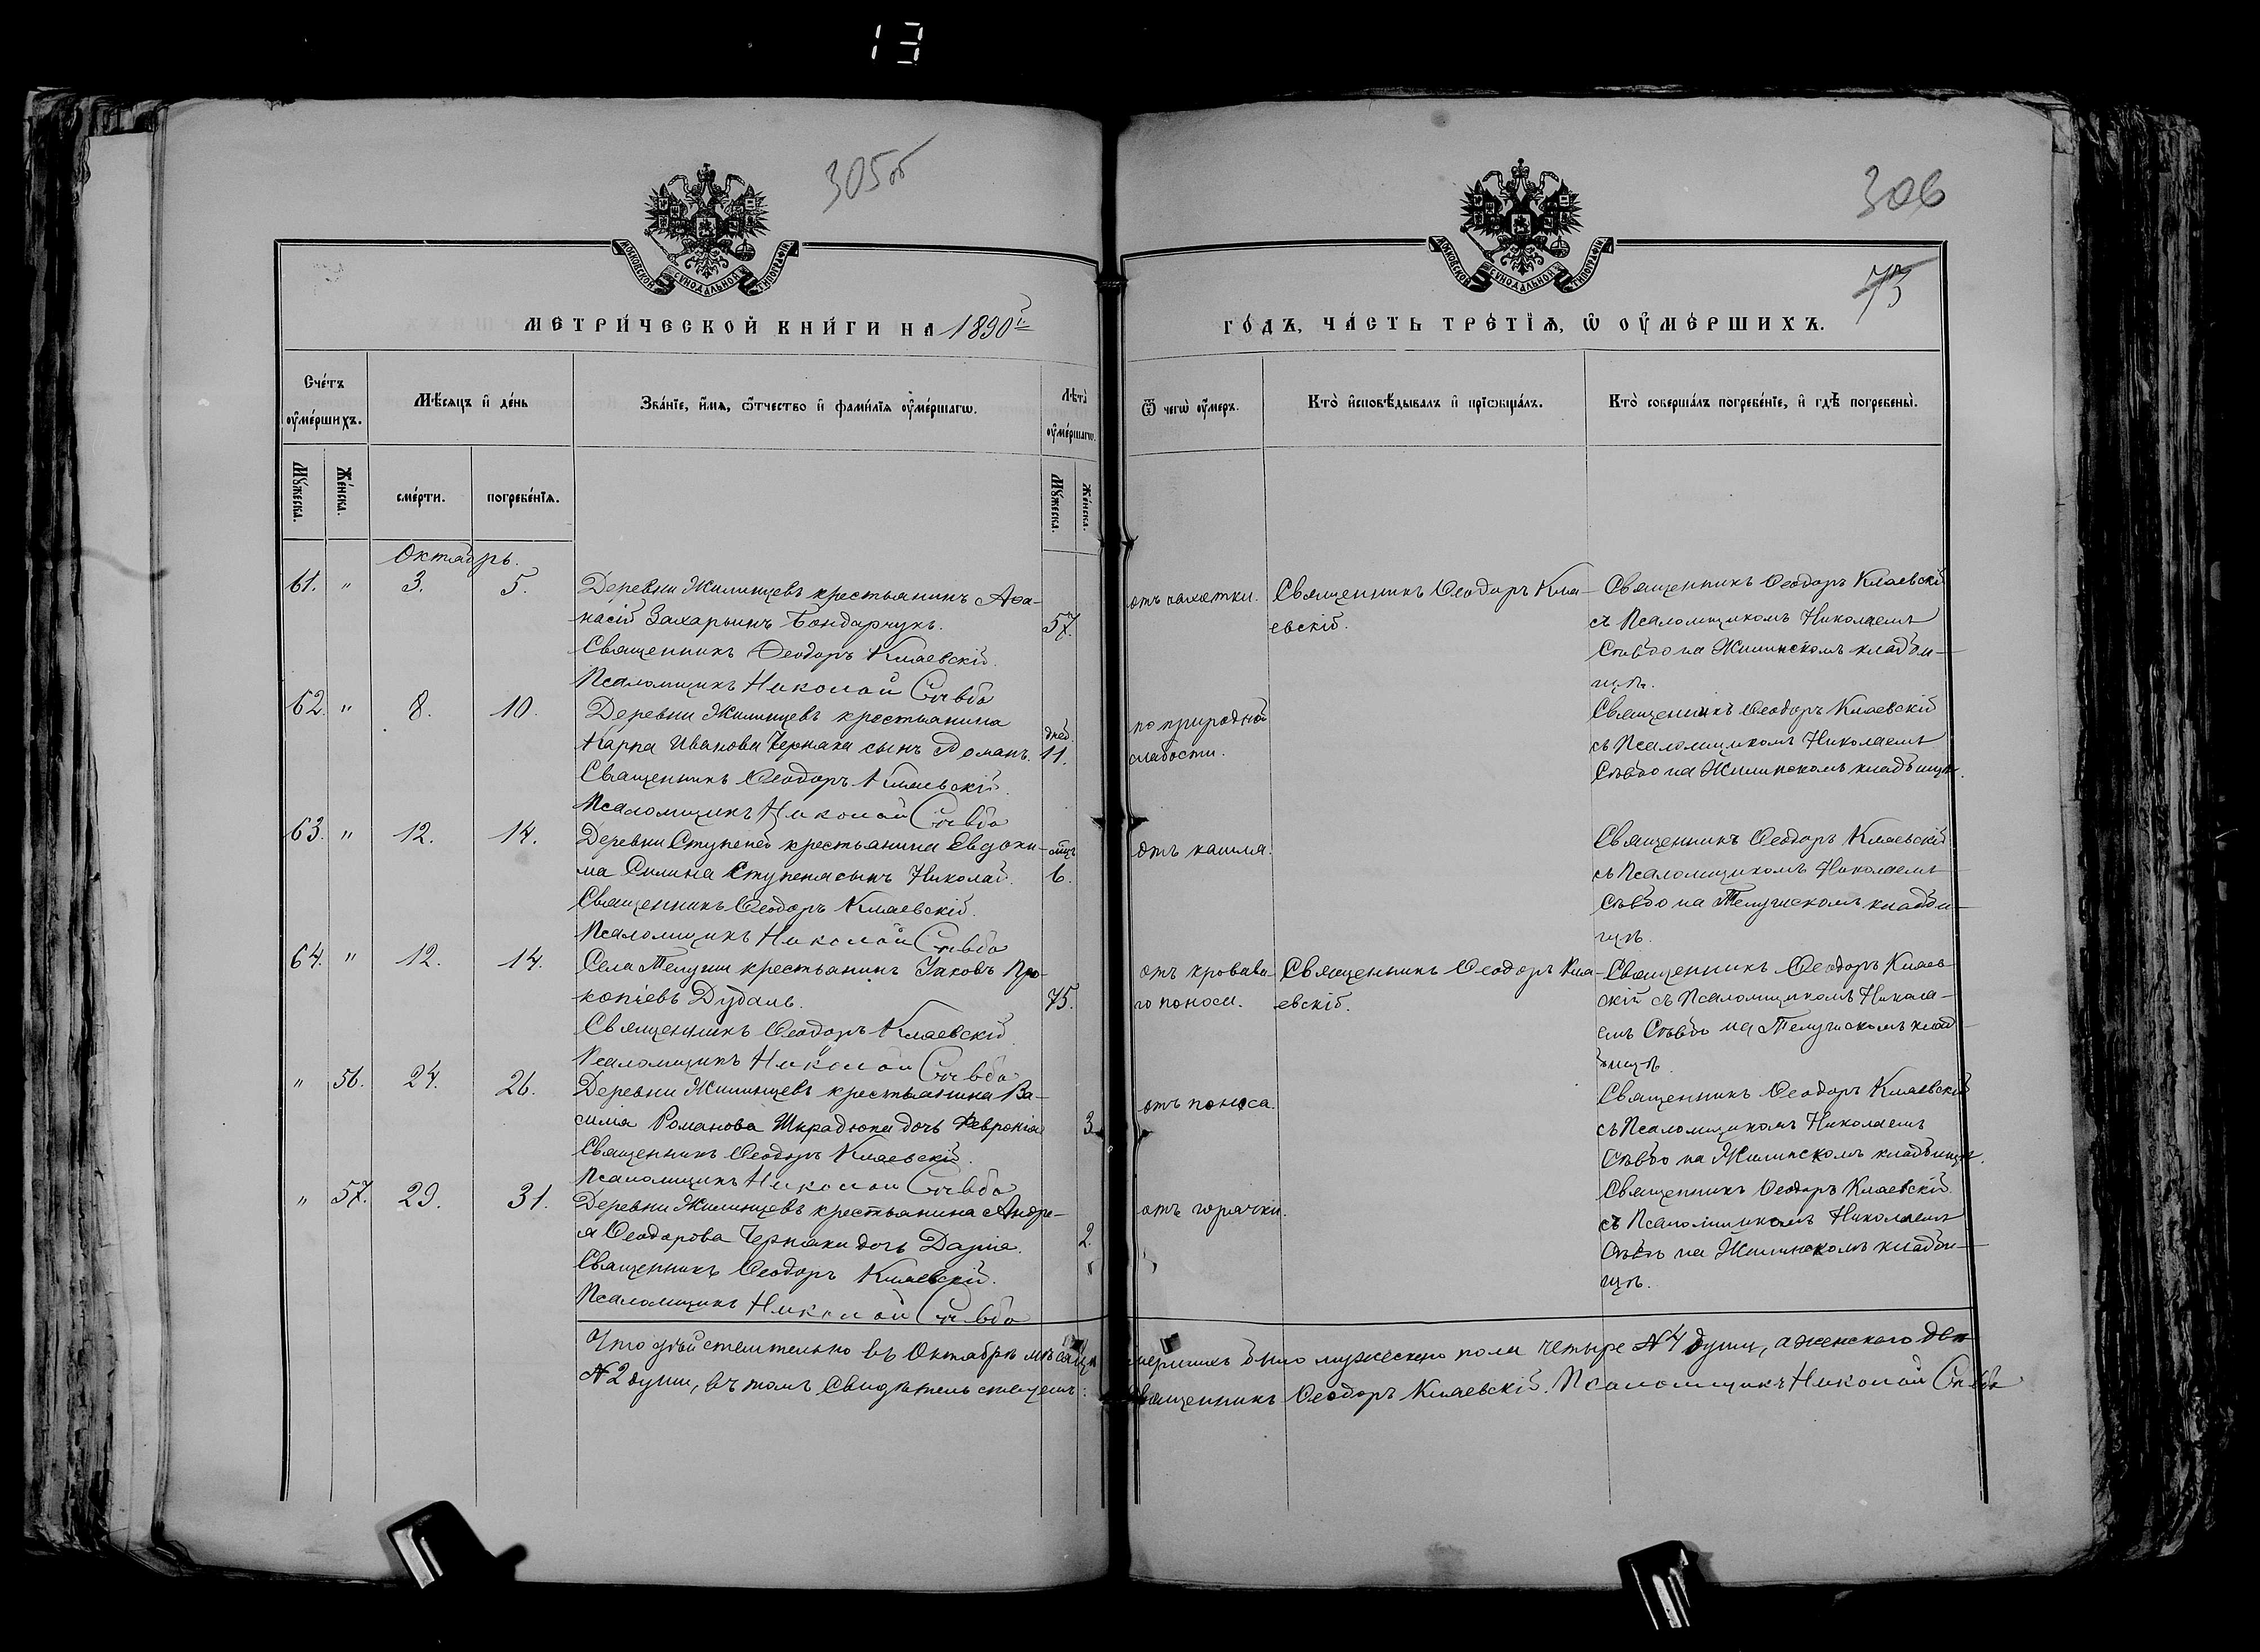 13
305об
306
73
МОСКОВСКОЙ СѴНОДАЛЬНОЙ ТИПОГРАФІИ
МОСКОВСКОЙ СѴНОДАЛЬНОЙ ТИПОГРАФІИ
МЕТРИ́ЧЕСКОЙ КНИ́ГИ НА 1890 г.
ГО́ДЪ, ЧА́СТЬ ТРЕ́ТІѦ, Ѡ ОУМЕ́РШИХЪ.
Сче́тъ оумершихъ.
Мѣ́сяцъ и де́нь
Зва́нїе, и́мѧ, ѻ́тчество и фами́лїѧ оуме́ршагѡ.
Лѣта̀ оуме́ршагѡ.
Ѿ чегѡ̀ оу́меръ.
Кто̀ исповѣ́дывалъ и прїѡбща́лъ.
Кто̀ соверша́лъ погребе́нїе, и гдѣ̀ погребены̀.
Мꙋ́жеска.
Же́нска.
сме́рти.
погребе́нїѧ.
Мꙋ́жеска.
Же́нска.
Октябрь.
61. " 3. 5. Деревни Жилинцевъ крестьянинъ Аѳа-
насій Захарьинъ Бондарчукъ. 57.
Священникъ Ѳеодоръ Клаевскій.
Псаломщикъ Николай
отъ сахотки. Священникъ Ѳеодоръ Кла-
евскій.
Священникъ Ѳеодоръ Клаевскій
съ Псаломщикомъ Николаемъ
на Жилинскомъ кладби-
щѣ.
62. " 8. 10. Деревни Жилинцевъ крестьянина
дней
Карпа Иванова Черняка сынъ Романъ. 11.
Священникъ Ѳеодоръ Клаевскій.
Псаломщикъ Николай
по природной
слабости.
Священникъ Ѳеодоръ Клаевскій
съ Псаломщикомъ Николаемъ
на Жилинскомъ кладбищѣ.
63. " 12. 14. Деревни Ступеней крестьянина Евдоки-
ма Силина Ступеня сынъ Николай. 6.
Священникъ Ѳеодоръ Клаевскій.
Псаломщикъ Николай
отъ кашля.
Священникъ Ѳеодоръ Клаевскій
съ Псаломщикомъ Николаемъ
на кладби-
щѣ.
64. " 12. 14. Села крестьянинъ Іаковъ Про-
копіевъ Дудаль. 75.
Священникъ Ѳеодоръ Клаевскій.
Псаломщикъ Николай
отъ кровава-
го поноса. Священникъ Ѳеодоръ Кла-
евскій.
Священникъ Ѳеодоръ Клаев-
скій съ Псаломщикомъ Никола-
емъ на клад-
бищѣ.
" 56. 24. 26. Деревни Жилинцевъ крестьянина Ва-
силія Романова дочь Февронія 3.
Священникъ Ѳеодоръ Клаевскій.
Псаломщикъ Николай
отъ поноса.
Священникъ Ѳеодоръ Клаевскій
съ Псаломщикомъ Николаемъ
на Жилинскомъ кладбищѣ.
" 57. 29. 31. Деревни Жилинцевъ крестьянина Андре-
я Ѳеодорова Черняки дочь Дарія. 2.
Священникъ Ѳеодоръ Клаевскій.
Псаломщикъ Николай
отъ горячки.
Священникъ Ѳеодоръ Клаевскій
съ Псаломщикомъ Николаемъ
на Жилинскомъ кладби-
щѣ.
Что дѣйствительно въ Октябрѣ мѣсяцѣ умершихъ было мужескаго пола четыре №4 души, а женскаго двѣ
№2 души, въ томъ свидѣтельствуемъ: Священникъ Ѳеодоръ Клаевскій. Псаломщикъ Николай